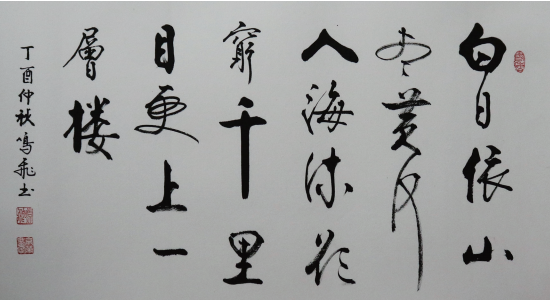 白日依山
尽黄河
入海流欲
窮千里
目更上一
層楼
丁酉仲秋鸣飛书